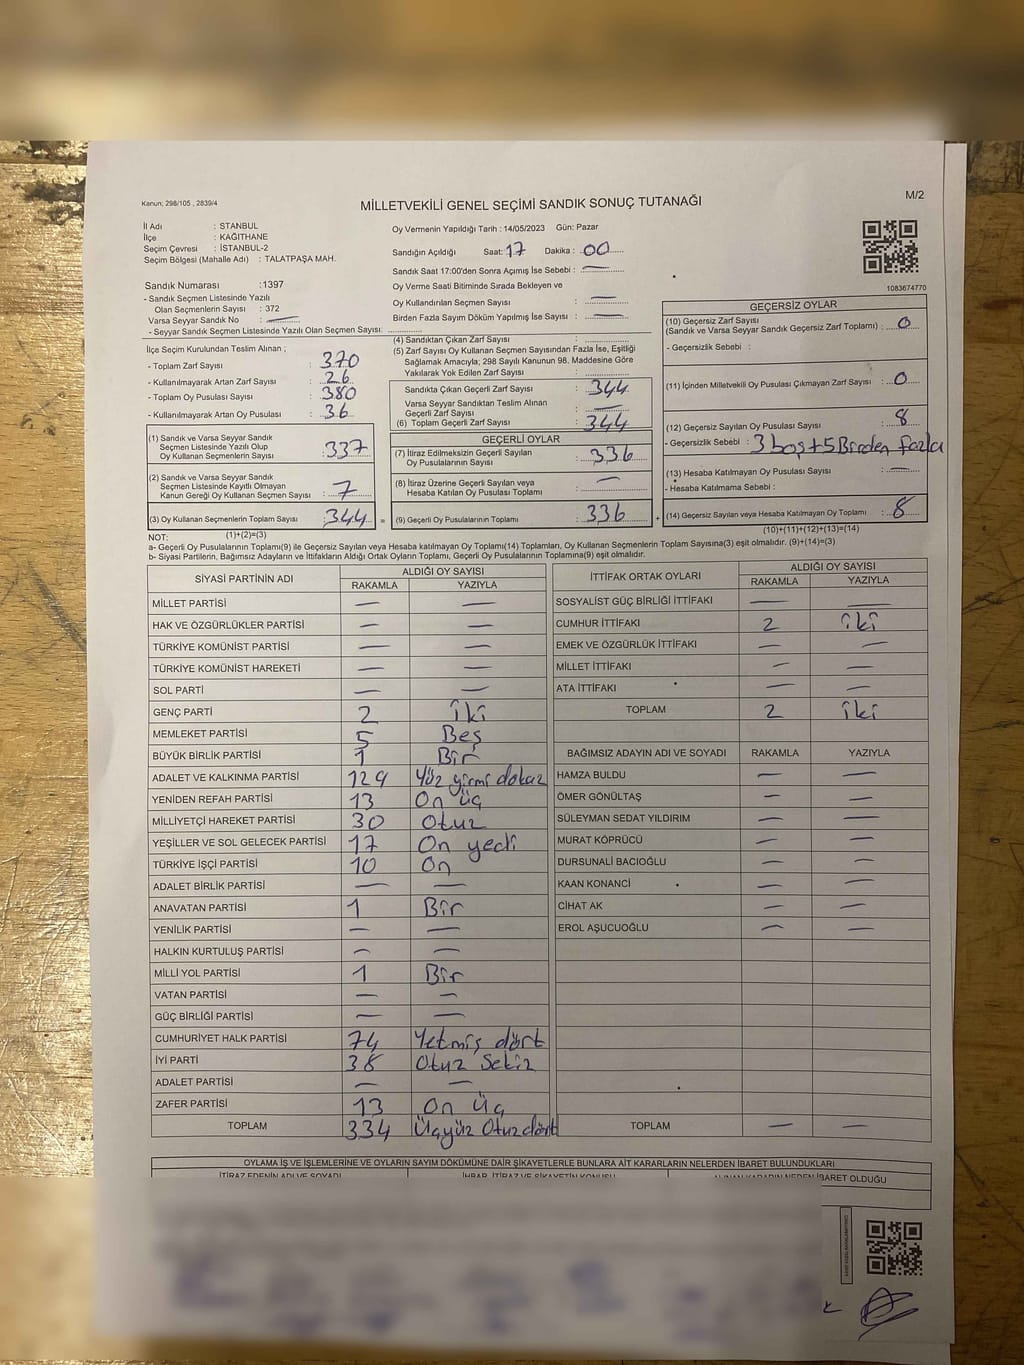 Kanun; 298/105 , 2839/4
MİLLETVEKİLİ GENEL SEÇİMİ SANDIK SONUÇ TUTANAĞI
M/2
İl Adı : STANBUL
İlçe : KAĞITHANE
Seçim Çevresi : İSTANBUL-2
Seçim Bölgesi (Mahalle Adı) : TALATPAŞA MAH.
Sandık Numarası :1397
- Sandık Seçmen Listesinde Yazılı
Olan Seçmenlerin Sayısı : 372
Varsa Seyyar Sandık No : —
- Seyyar Sandık Seçmen Listesinde Yazılı Olan Seçmen Sayısı:
Oy Vermenin Yapıldığı Tarih : 14/05/2023 Gün: Pazar
Sandığın Açıldığı Saat: 17 Dakika : 00
Sandık Saat 17:00'den Sonra Açımış İse Sebebi : —
Oy Verme Saati Bitiminde Sırada Bekleyen ve
Oy Kullandırılan Seçmen Sayısı : —
Birden Fazla Sayım Döküm Yapılmış İse Sayısı : —
1083674770
İlçe Seçim Kurulundan Teslim Alınan ;
- Toplam Zarf Sayısı : 370
- Kullanılmayarak Artan Zarf Sayısı : 26
- Toplam Oy Pusulası Sayısı : 380
- Kullanılmayarak Artan Oy Pusulası : 36
(1) Sandık ve Varsa Seyyar Sandık
Seçmen Listesinde Yazılı Olup
Oy Kullanan Seçmenlerin Sayısı : 337
(2) Sandık ve Varsa Seyyar Sandık
Seçmen Listesinde Kayıtlı Olmayan
Kanun Gereği Oy Kullanan Seçmen Sayısı : 7
(3) Oy Kullanan Seçmenlerin Toplam Sayısı : 344 =
(1)+(2)=(3)
(4) Sandıktan Çıkan Zarf Sayısı :
(5) Zarf Sayısı Oy Kullanan Seçmen Sayısından Fazla İse, Eşitliği
Sağlamak Amacıyla; 298 Sayılı Kanunun 98. Maddesine Göre
Yakılarak Yok Edilen Zarf Sayısı :
Sandıkta Çıkan Geçerli Zarf Sayısı : 344
Varsa Seyyar Sandıktan Teslim Alınan
Geçerli Zarf Sayısı : —
(6) Toplam Geçerli Zarf Sayısı : 344
GEÇERLİ OYLAR
(7) İtiraz Edilmeksizin Geçerli Sayılan
Oy Pusulalarının Sayısı : 336
(8) İtiraz Üzerine Geçerli Sayılan veya
Hesaba Katılan Oy Pusulası Toplamı : —
(9) Geçerli Oy Pusulalarının Toplamı : 336 +
GEÇERSİZ OYLAR
(10) Geçersiz Zarf Sayısı
(Sandık ve Varsa Seyyar Sandık Geçersiz Zarf Toplamı) : 0
- Geçersizlik Sebebi :
(11) İçinden Milletvekili Oy Pusulası Çıkmayan Zarf Sayısı : 0
(12) Geçersiz Sayılan Oy Pusulası Sayısı : 8
- Geçersizlik Sebebi : 3 boş+5 Birden fazla
(13) Hesaba Katılmayan Oy Pusulası Sayısı : —
- Hesaba Katılmama Sebebi :
(14) Geçersiz Sayılan veya Hesaba Katılmayan Oy Toplamı : 8
(10)+(11)+(12)+(13)=(14)
NOT:
a- Geçerli Oy Pusulalarının Toplamı(9) ile Geçersiz Sayılan veya Hesaba katılmayan Oy Toplamı(14) Toplamları, Oy Kullanan Seçmenlerin Toplam Sayısına(3) eşit olmalıdır. (9)+(14)=(3)
b- Siyasi Partilerin, Bağımsız Adayların ve İttifakların Aldığı Ortak Oyların Toplamı, Geçerli Oy Pusulalarının Toplamına(9) eşit olmalıdır.
SİYASİ PARTİNİN ADI ALDIĞI OY SAYISI
RAKAMLA YAZIYLA
MİLLET PARTİSİ — —
HAK VE ÖZGÜRLÜKLER PARTİSİ — —
TÜRKİYE KOMÜNİST PARTİSİ — —
TÜRKİYE KOMÜNİST HAREKETİ — —
SOL PARTİ — —
GENÇ PARTİ 2 iki
MEMLEKET PARTİSİ 5 Beş
BÜYÜK BİRLİK PARTİSİ 1 Bir
ADALET VE KALKINMA PARTİSİ 129 Yüz yirmi dokuz
YENİDEN REFAH PARTİSİ 13 On üç
MİLLİYETÇİ HAREKET PARTİSİ 30 Otuz
YEŞİLLER VE SOL GELECEK PARTİSİ 17 On yedi
TÜRKİYE İŞÇİ PARTİSİ 10 On
ADALET BİRLİK PARTİSİ — —
ANAVATAN PARTİSİ 1 Bir
YENİLİK PARTİSİ — —
HALKIN KURTULUŞ PARTİSİ — —
MİLLİ YOL PARTİSİ 1 Bir
VATAN PARTİSİ — —
GÜÇ BİRLİĞİ PARTİSİ — —
CUMHURİYET HALK PARTİSİ 74 Yetmiş dört
İYİ PARTİ 38 Otuz Sekiz
ADALET PARTİSİ — —
ZAFER PARTİSİ 13 On Üç
TOPLAM 334 Üçyüz Otuzdört
İTTİFAK ORTAK OYLARI ALDIĞI OY SAYISI
RAKAMLA YAZIYLA
SOSYALİST GÜÇ BİRLİĞİ İTTİFAKI — —
CUMHUR İTTİFAKI 2 iki
EMEK VE ÖZGÜRLÜK İTTİFAKI — —
MİLLET İTTİFAKI — —
ATA İTTİFAKI — —
TOPLAM 2 iki
BAĞIMSIZ ADAYIN ADI VE SOYADI RAKAMLA YAZIYLA
HAMZA BULDU — —
ÖMER GÖNÜLTAŞ — —
SÜLEYMAN SEDAT YILDIRIM — —
MURAT KÖPRÜCÜ — —
DURSUNALİ BACIOĞLU — —
KAAN KONANCİ — —
CİHAT AK — —
EROL AŞUCUOĞLU — —
TOPLAM — —
OYLAMA İŞ VE İŞLEMLERİNE VE OYLARIN SAYIM DÖKÜMÜNE DAİR ŞİKAYETLERLE BUNLARA AİT KARARLARIN NELERDEN İBARET BULUNDUKLARI
İTİRAZ EDENİN ADI VE SOYADI İHBAR, İTİRAZ VE ŞİKAYETİN KONUSU ALINAN KARARIN NEDEN İBARET OLDUĞU